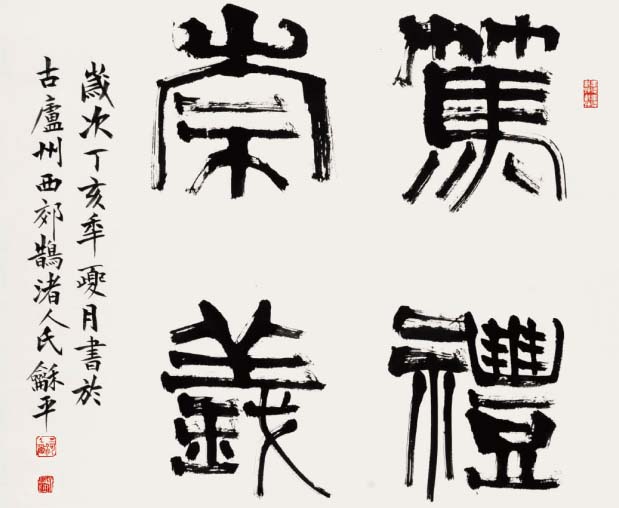 篤禮
崇義
歲次丁亥年夏月書於
古廬州西郊鵲渚人氏龢平